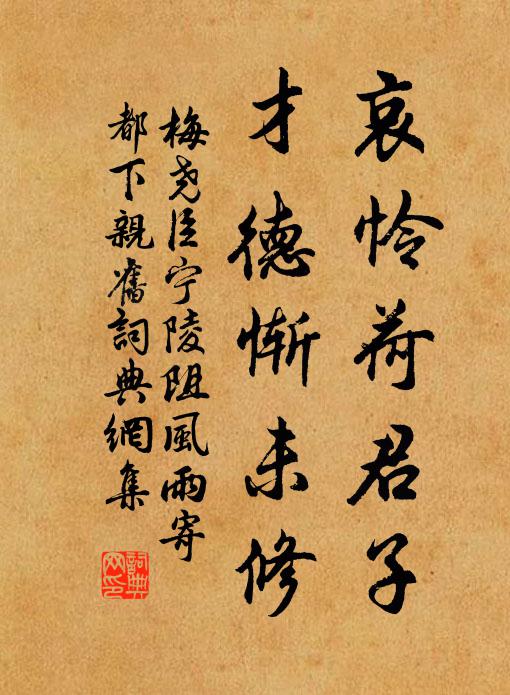 哀怜荷君子
才德惭未修
梅尧臣宁陵阻風雨寄
都下親舊詞典網集
詞典
网印